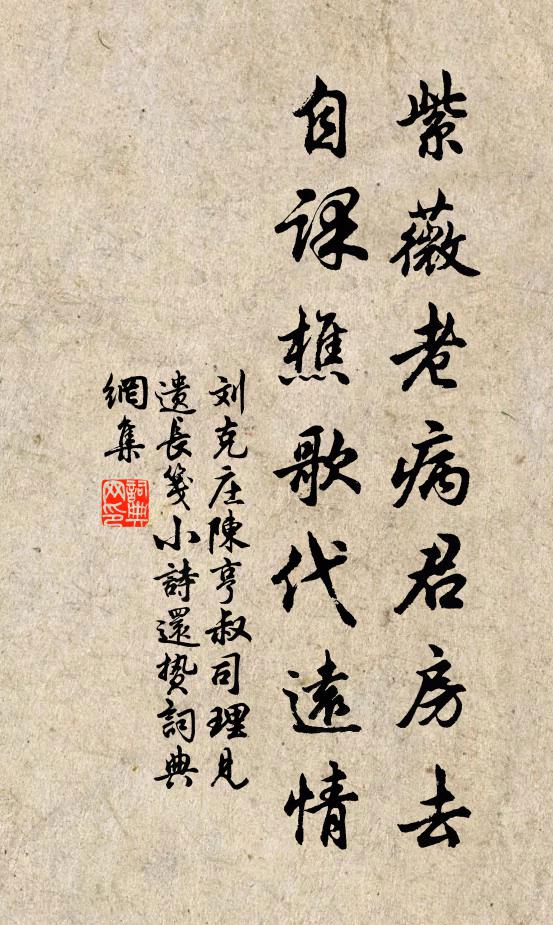 紫薇老病君房去
自課樵歌代遠情
刘克庄陳亨叔司理見
遺長箋小詩還贄詞典
網集
詞典网印